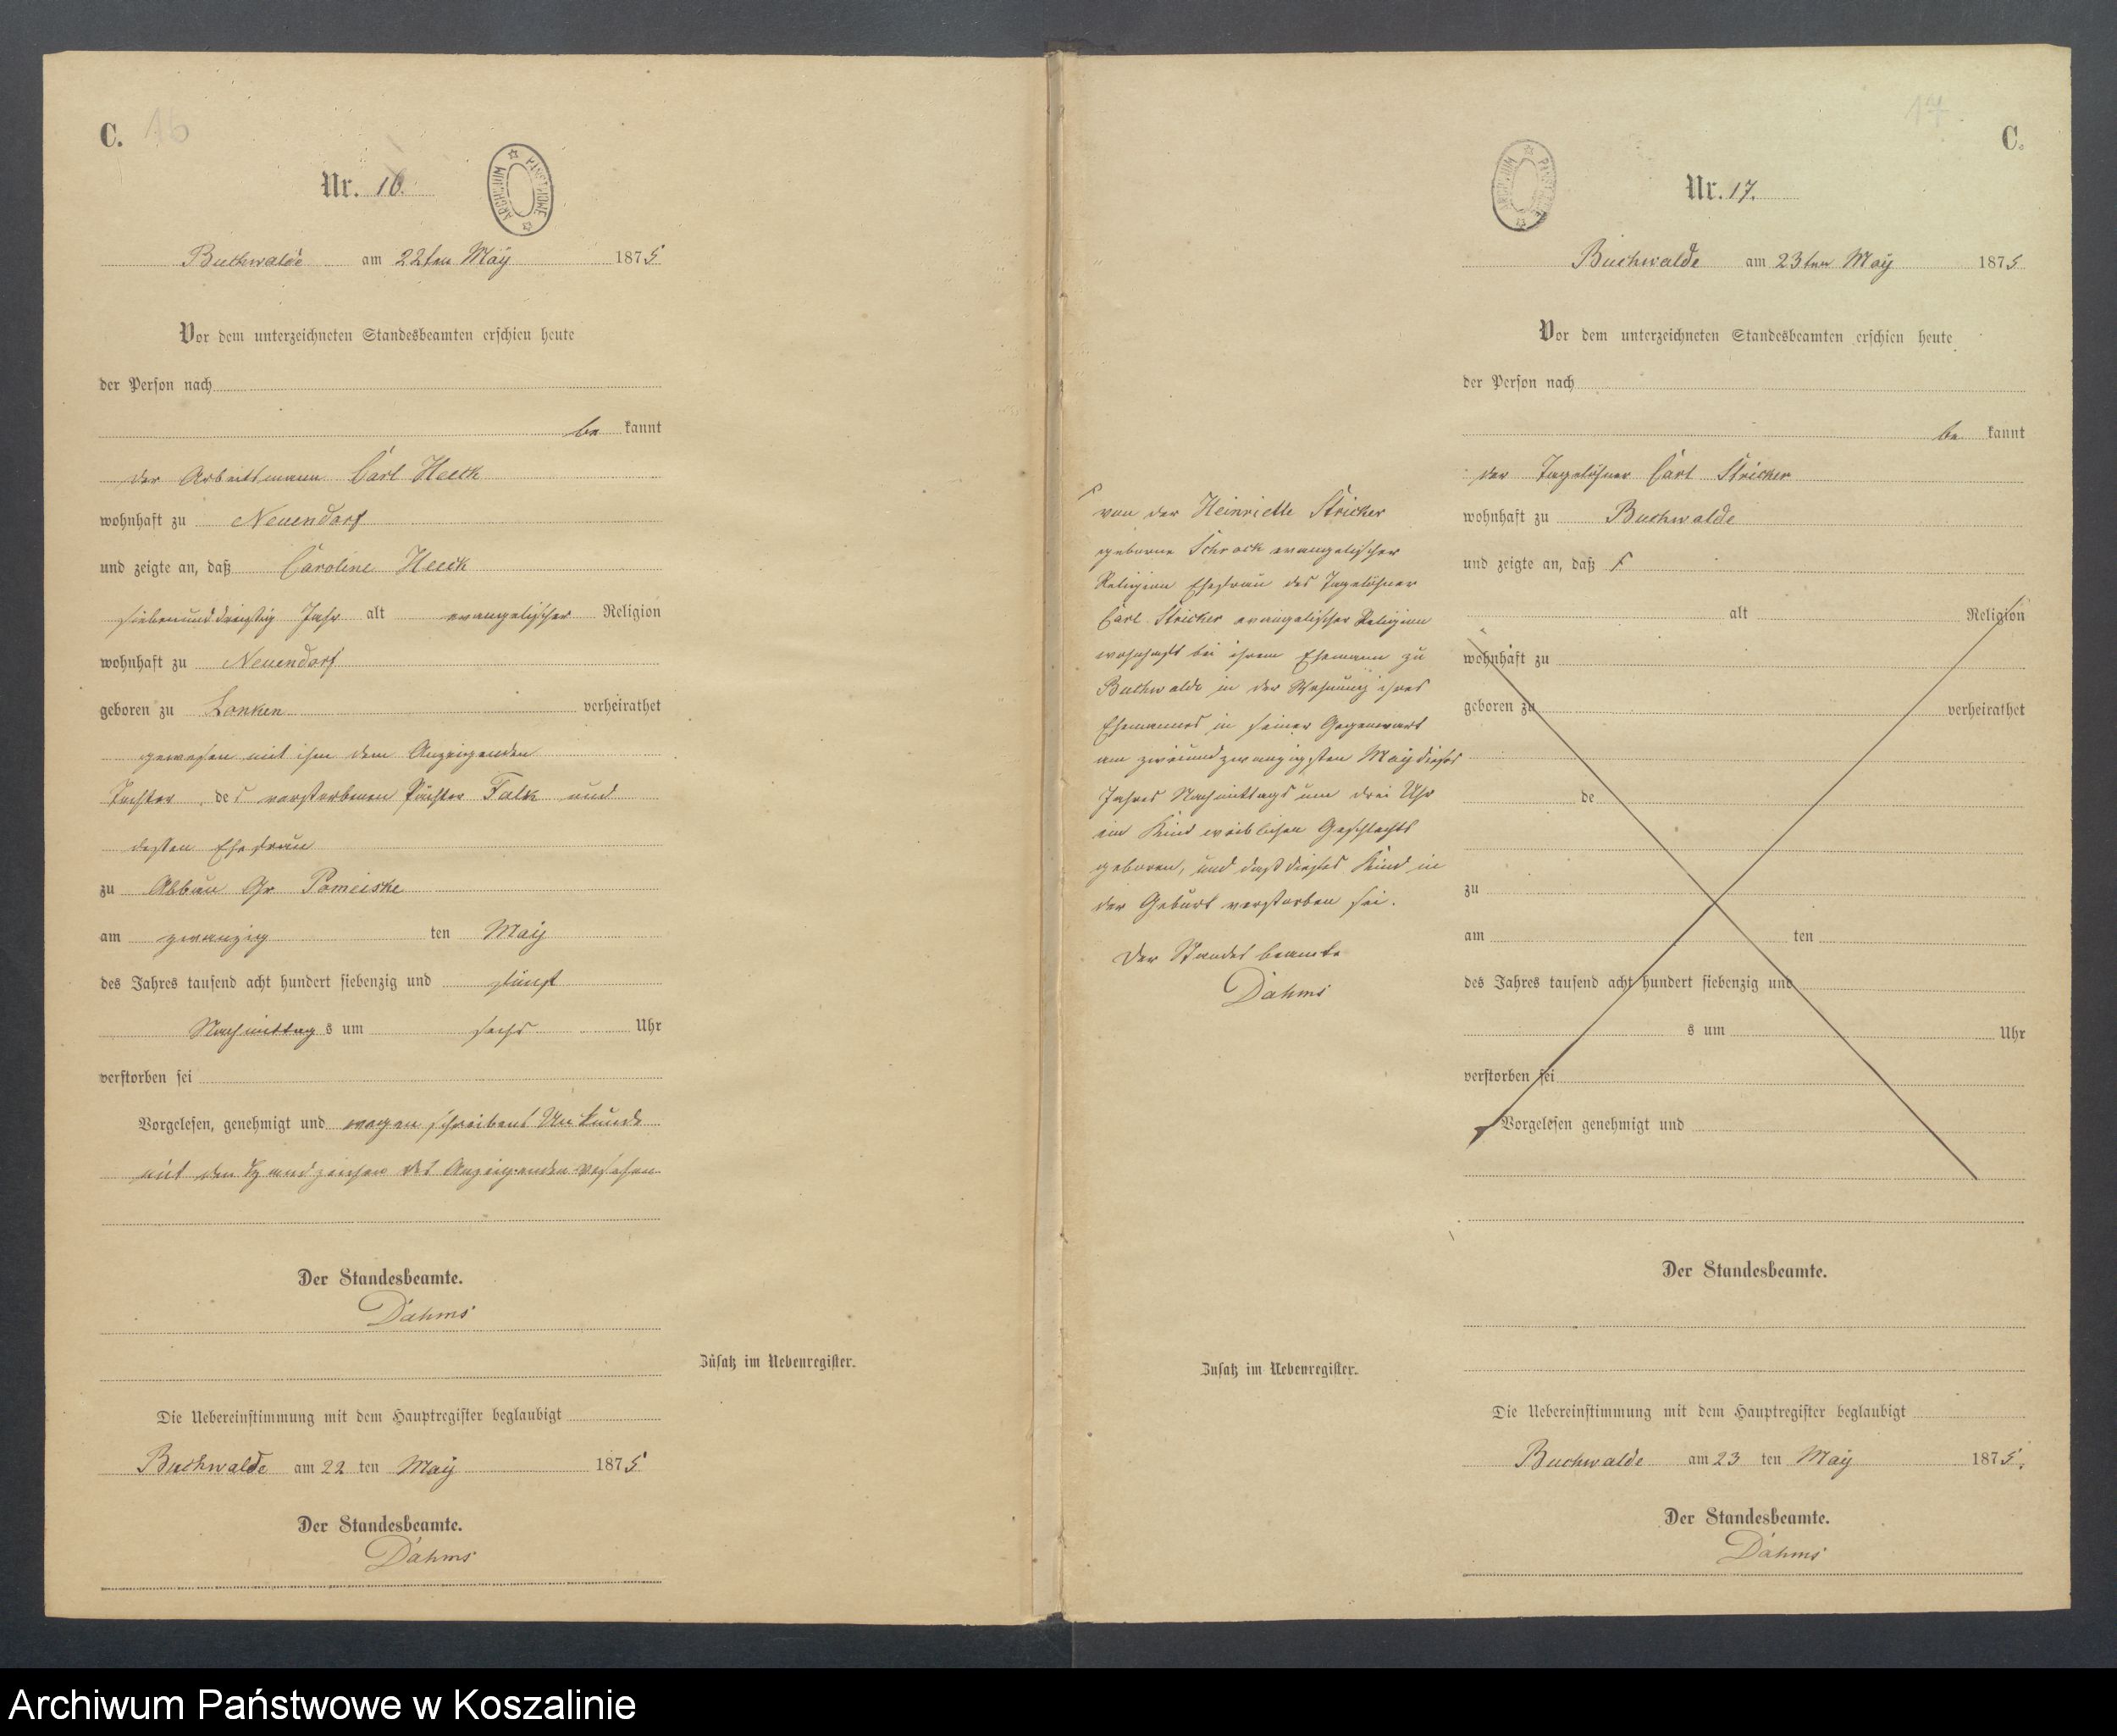 C. 16
Nr. 16.
ARCHIWUM PAŃSTWOWE
Buchwalde am 22ten May 1875
Vor dem unterzeichneten Standesbeamten erschien heute
der Person nach
be kannt
der Arbeitsmann Carl Heeck
wohnhaft zu Neuendorf
und zeigte an, daß Caroline Heeck
siebenunddreißig Jahr alt evangelischer Religion
wohnhaft zu Neuendorf
geboren zu Lonken verheirathet
gewesen mit ihm dem Anzeigenden
Tochter des verstorbenen Pächter Falk und
dessen Ehefrau
zu Abbau Gr Pomeiske
am zwanzig ten May
des Jahres tausend acht hundert siebenzig und fünf
Nachmittag s um sechs Uhr
verstorben sei
Vorgelesen, genehmigt und wegen schreibens Unkunde
mit den Handzeichen des Anzeigenden versehen
Der Standesbeamte.
Dahms
Zusatz im Nebenregister.
Die Uebereinstimmung mit dem Hauptregister beglaubigt
Buchwalde am 22 ten May 1875
Der Standesbeamte.
Dahms
17.
C.
ARCHIWUM PAŃSTWOWE
Nr. 17.
Buchwalde am 23ten May 1875
Vor dem unterzeichneten Standesbeamten erschien heute
der Person nach
be kannt
der Tagelöhner Carl Stricker
wohnhaft zu Buchwalde
und zeigte an, daß
alt Religion
wohnhaft zu
geboren zu verheirathet
de
zu
am ten
des Jahres tausend acht hundert siebenzig und
s um Uhr
verstorben sei
Vorgelesen genehmigt und
von der Heinriette Stricker
geborne Schrock evangelischer
Religion Ehefrau des Tagelöhner
Carl Stricker evangelischer Religion
wohnhaft bei ihrem Ehemann zu
Buchwalde in der Wohnung ihres
Ehemannes in seiner Gegenwart
am zweiundzwanzigsten May dieses
Jahres Nachmittags um drei Uhr
ein Kind weiblichen Geschlechts
geboren, und daß dieses Kind in
der Geburt verstorben sei.
Der Standesbeamte
Dahms
Der Standesbeamte.
Zusatz im Nebenregister.
Die Uebereinstimmung mit dem Hauptregister beglaubigt
Buchwalde am 23 ten May 1875.
Der Standesbeamte.
Dahms
Archiwum Państwowe w Koszalinie